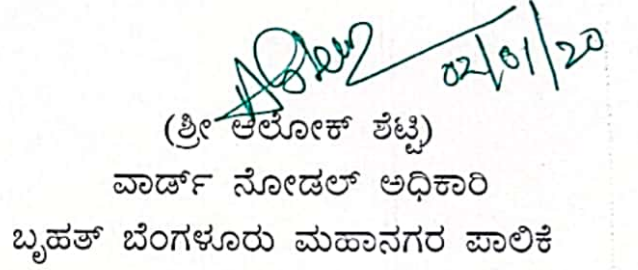 02/01/20
(ಶ್ರೀ ಆಲೋಕ್ ಶೆಟ್ಟಿ)
ವಾರ್ಡ್ ನೋಡಲ್ ಅಧಿಕಾರಿ
ಬೃಹತ್ ಬೆಂಗಳೂರು ಮಹಾನಗರ ಪಾಲಿಕೆ